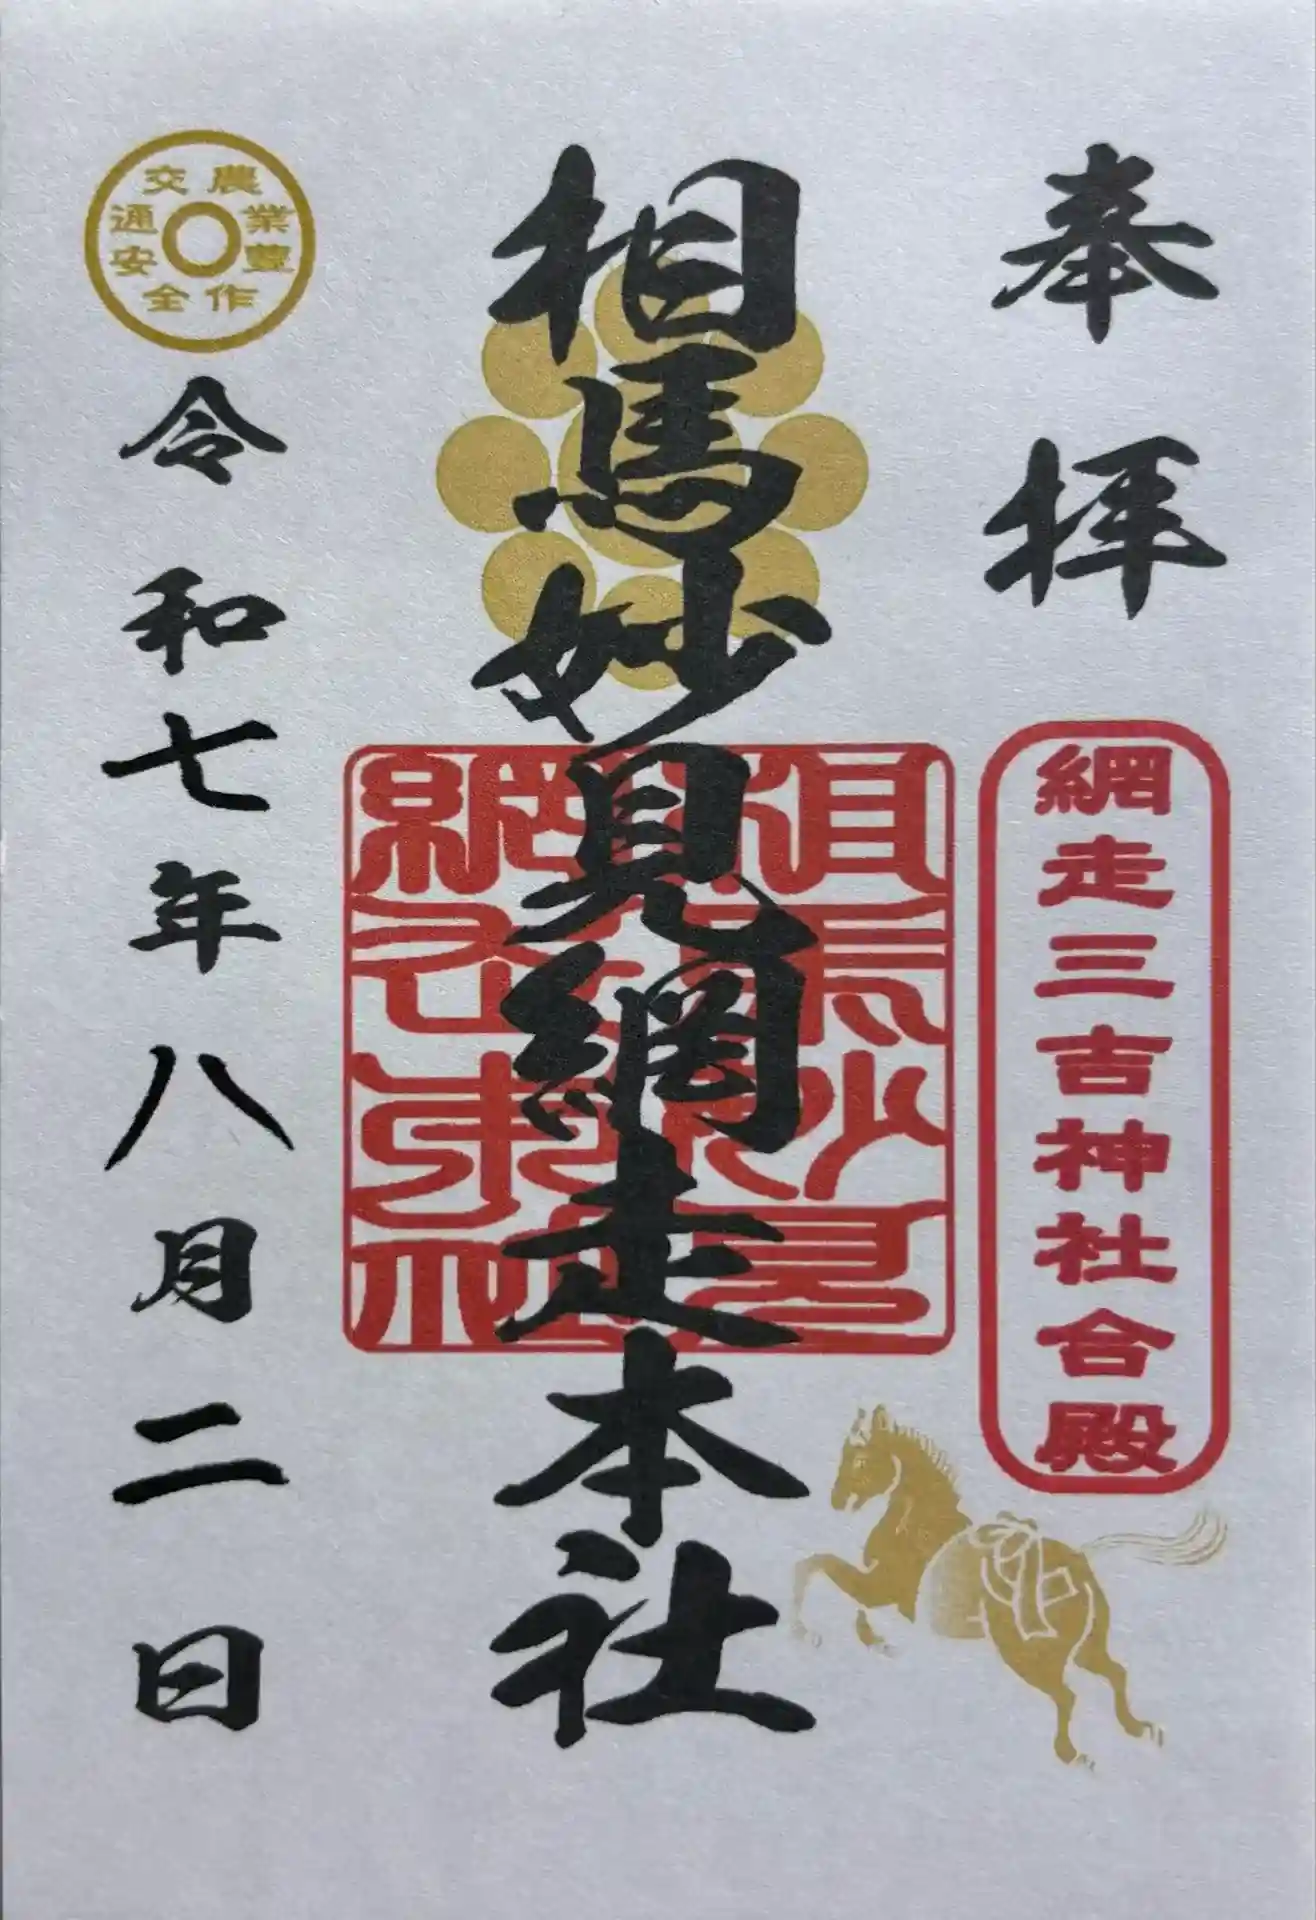 奉拝
網走三吉神社合殿
相馬妙見網走本社
相馬妙見
網走本社
農業豊作
交通安全
令和七年八月二日